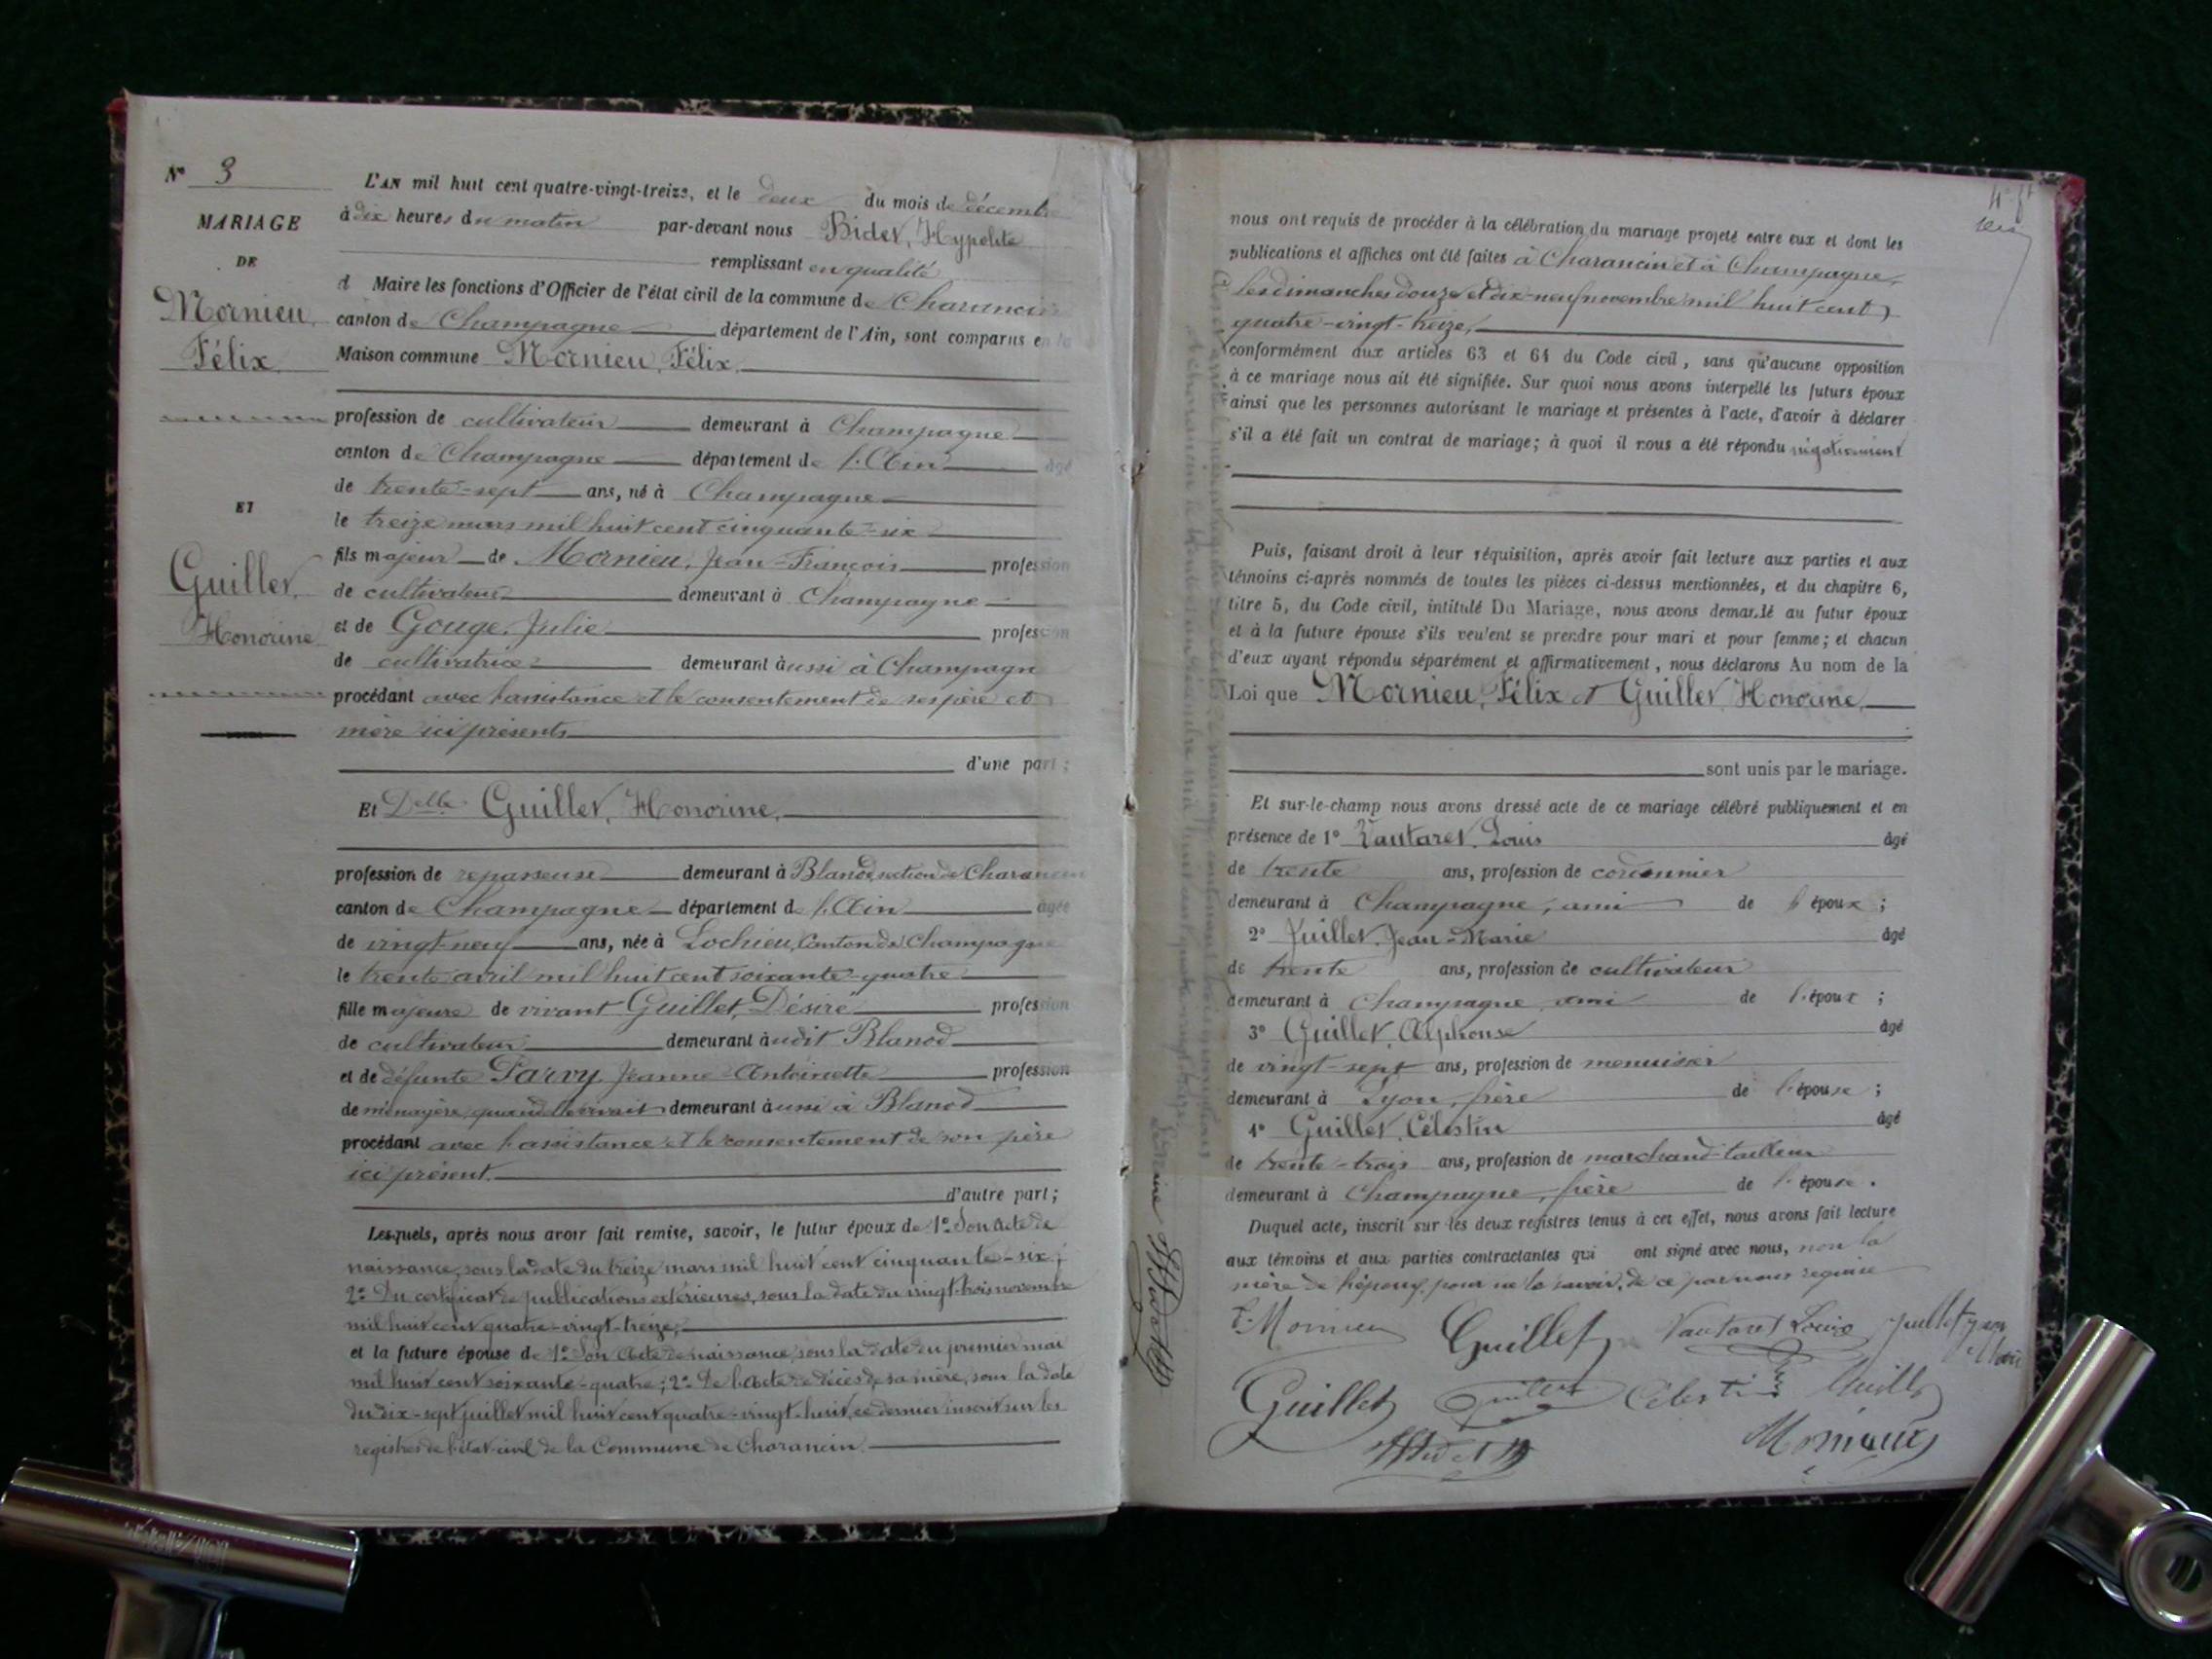 N° 3
MARIAGE
DE
Mornieu,
Félix.
ET
Guillet,
Honorine
L'AN mil huit cent quatre-vingt-treize, et le deux du mois de décembre
à dix heures du matin par-devant nous Bidet, Hypolite
remplissant en qualité
d Maire les fonctions d'Officier de l'état civil de la commune de Charancin
canton de Champagne département de l'Ain, sont comparus en la
Maison commune Mornieu, Félix,
profession de cultivateur demeurant à Champagne
canton de Champagne département de l'Ain âgé
de trente-sept ans, né à Champagne
le treize mars mil huit cent cinquante-six
fils majeur de Mornieu, Jean-François profession
de cultivateur demeurant à Champagne
et de Gouge, Julie profession
de cultivatrice demeurant aussi à Champagne
procédant avec l'assistance et le consentement de ses père et
mère ici présents
d'une part ;
Et Delle Guillet, Honorine,
profession de repasseuse demeurant à Blanod, section de Charancin
canton de Champagne département d l'Ain âgée
de vingt-neuf ans, née à Lochieu, Canton de Champagne
le trente avril mil huit cent soixante-quatre
fille majeure de vivant Guillet, Désiré profession
de cultivateur demeurant audit Blanod
et de défunte Parvy, Jeanne-Antoinette profession
de ménagère, quand vivait demeurant aussi à Blanod
procédant avec l'assistance et le consentement de son père
ici présent.
d'autre part ;
Lesquels, après nous avoir fait remise, savoir, le futur époux de 1° Son Acte de
naissance, sous la date du treize mars mil huit cent cinquante-six ;
2° Du certificat de publications extérieures, sous la date du vingt-trois novembre
mil huit cent quatre-vingt-treize,
et la future épouse de 1° Son Acte de naissance, sous la date du premier mai
mil huit cent soixante-quatre ; 2° De l'Acte de décès de sa mère, sous la date
du dix-sept juillet mil huit cent quatre-vingt-huit, ce dernier inscrit sur les
registres de l'état-civil de la Commune de Charancin.
nous ont requis de procéder à la célébration du mariage projeté entre eux et dont les
publications et affiches ont été faites à Charancin et à Champagne,
les dimanches douze et dix-neuf novembre mil huit cent
quatre-vingt-treize,
conformément aux articles 63 et 64 du Code civil, sans qu'aucune opposition
à ce mariage nous ait été signifiée. Sur quoi nous avons interpellé les futurs époux
ainsi que les personnes autorisant le mariage et présentes à l'acte, d'avoir à déclarer
s'il a été fait un contrat de mariage ; à quoi il nous a été répondu négativement
Puis, faisant droit à leur réquisition, après avoir fait lecture aux parties et aux
témoins ci-après nommés de toutes les pièces ci-dessus mentionnées, et du chapitre 6,
titre 5, du Code civil, intitulé Du Mariage, nous avons demandé au futur époux
et à la future épouse s'ils veulent se prendre pour mari et pour femme ; et chacun
d'eux ayant répondu séparément et affirmativement, nous déclarons Au nom de la
Loi que Mornieu, Félix et Guillet, Honorine,
sont unis par le mariage.
Et sur-le-champ nous avons dressé acte de ce mariage célébré publiquement et en
présence de 1° Vautaret, Louis âgé
de trente ans, profession de cordonnier
demeurant à Champagne, ami de l'époux ;
2° Juillet, Jean-Marie âgé
de trente ans, profession de cultivateur
demeurant à Champagne, ami de l'époux ;
3° Guillet, Alphonse âgé
de vingt-sept ans, profession de menuisier
demeurant à Lyon, frère de l'épouse ;
4° Guillet, Célestin âgé
de trente-trois ans, profession de marchand-tailleur
demeurant à Champagne, frère de l'épouse.
Duquel acte, inscrit sur les deux registres tenus à cet effet, nous avons fait lecture
aux témoins et aux parties contractantes qui ont signé avec nous, non la
mère de l'époux, pour ne le savoir, de ce par nous requise
F. Mornieu Guillet Vautaret Louis Juillet Jean Marie
Guillet Célestin Guillet
Mornieux